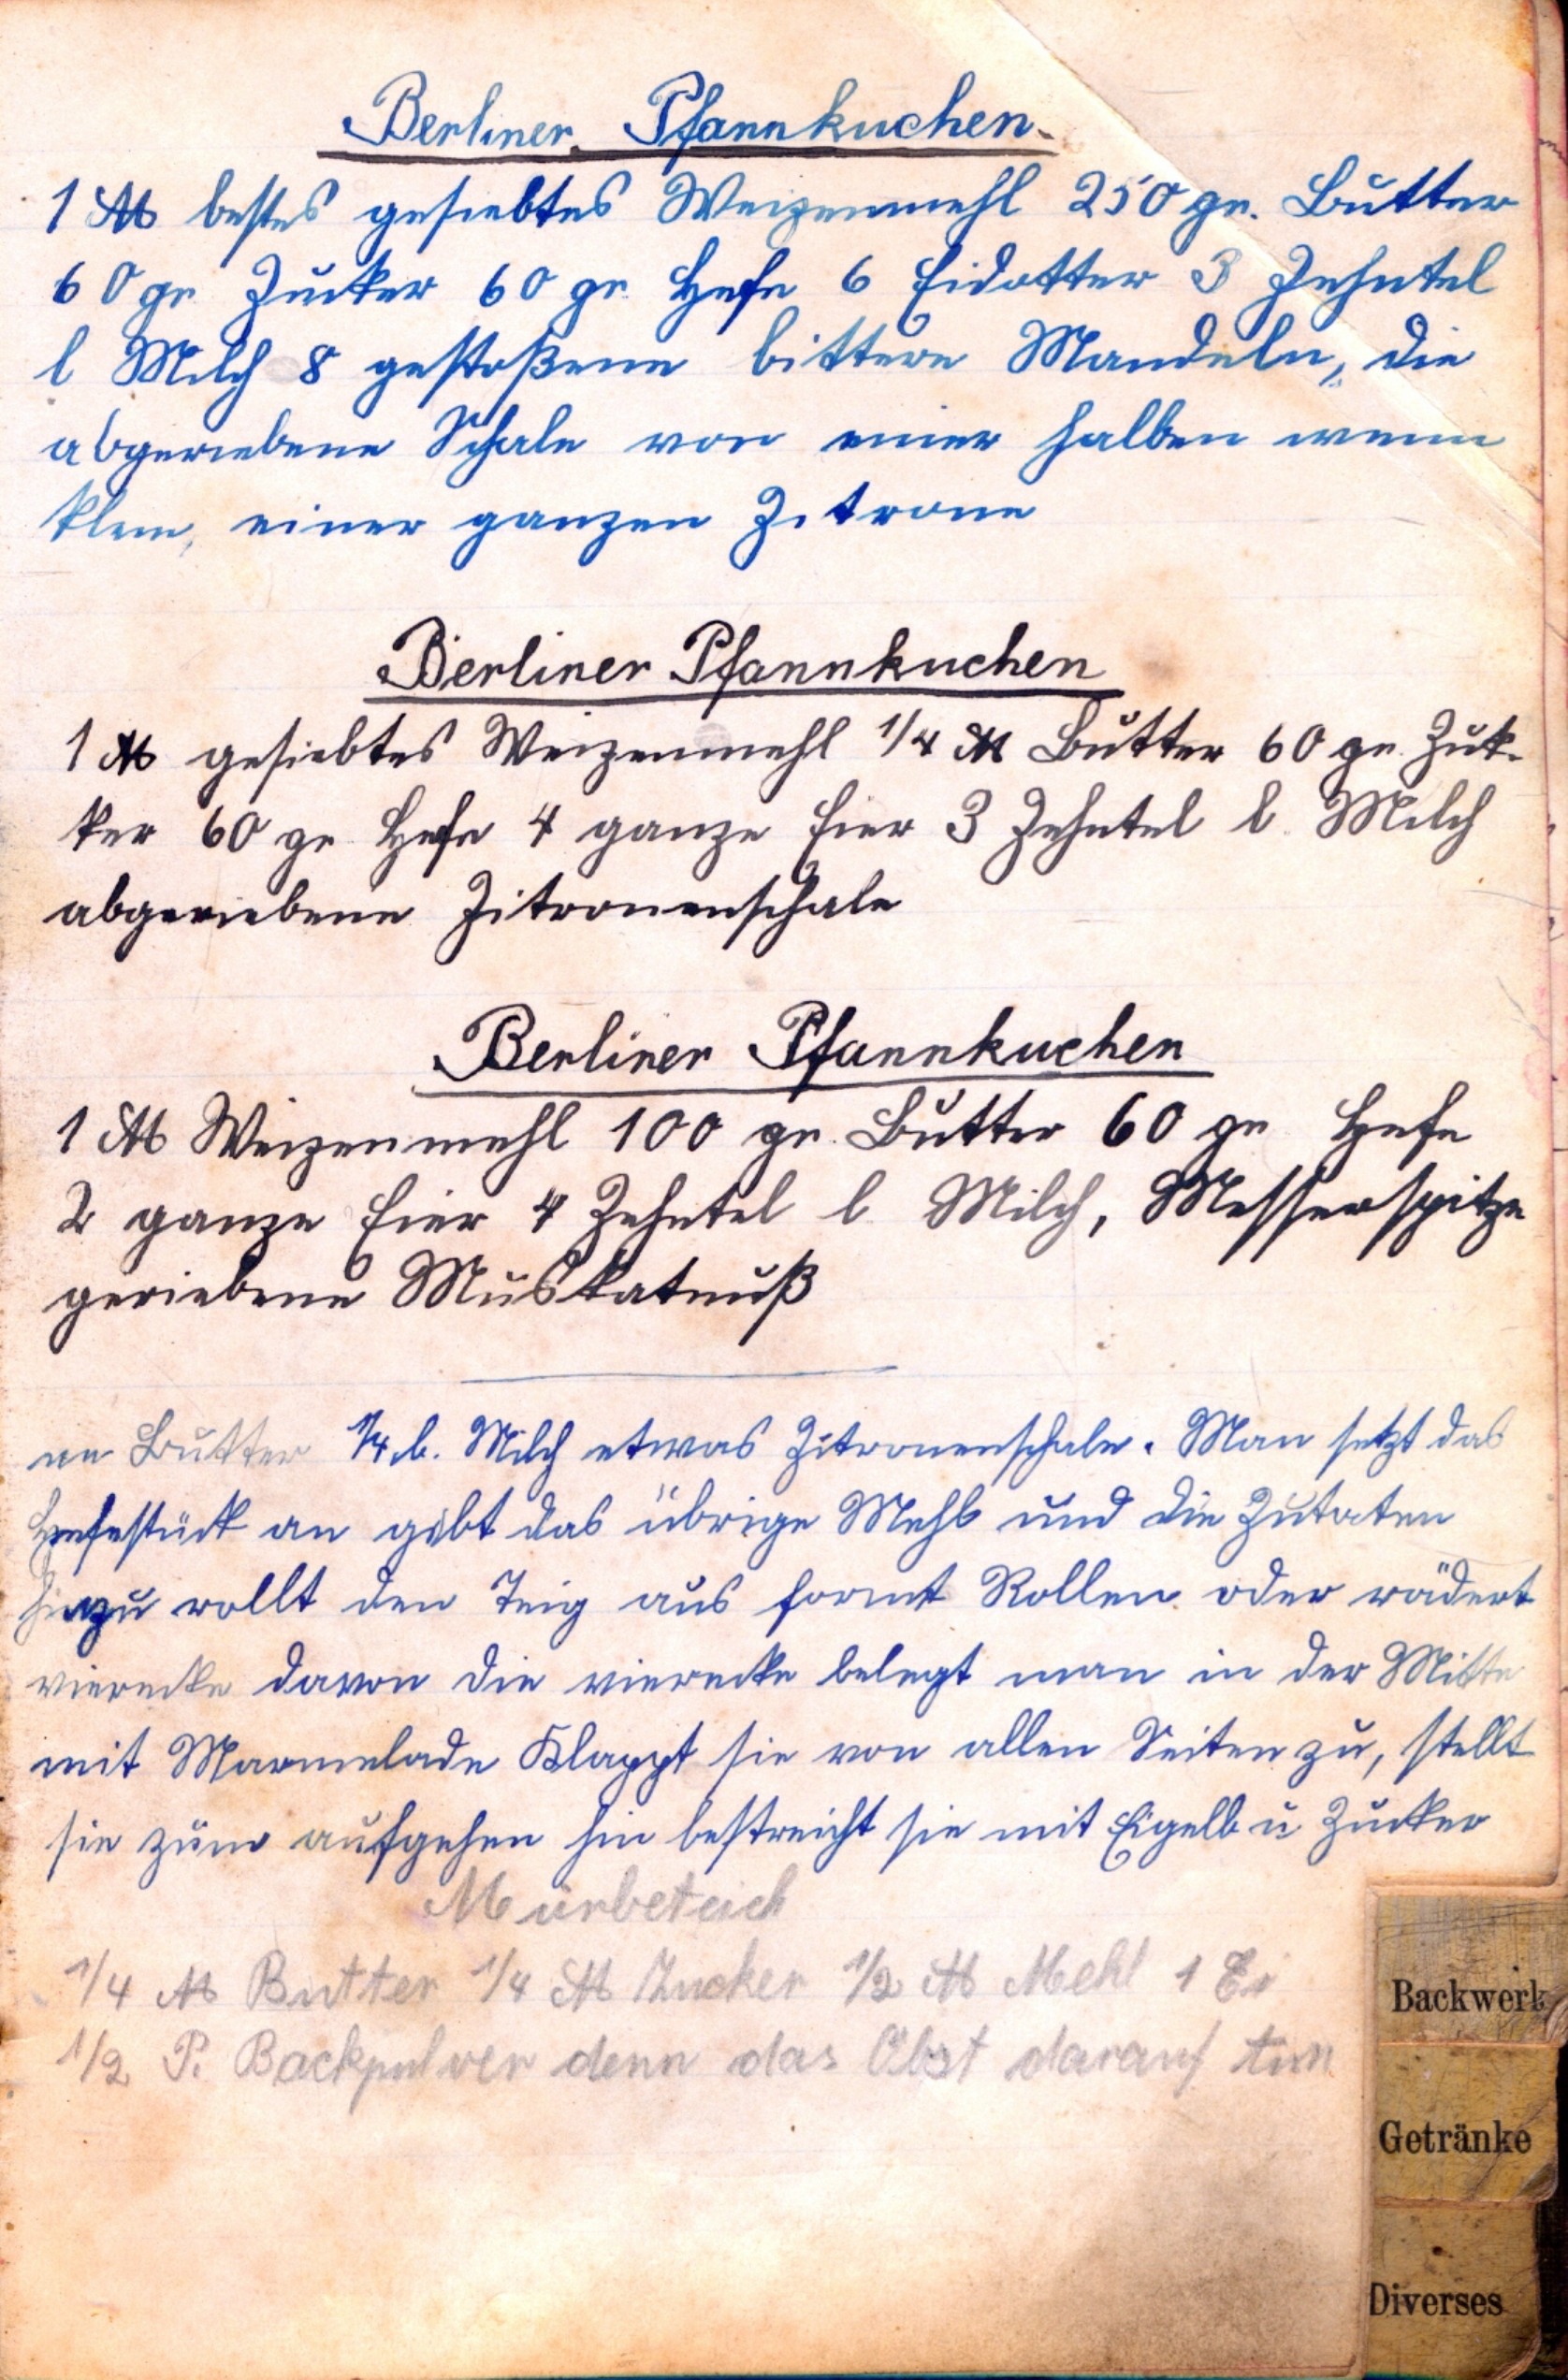 Berliner Pfannkuchen.
1 ℔ bestes gesiebtes Weizenmehl 250 gr. Butter
60 gr Zucker 60 gr. Hefe 6 Eidotter 3 Zehntel
l Milch 8 gestoßene bittere Mandeln, die
abgeriebene Schale von einer halben wenn
klein, einer ganzen Zitrone
Berliner Pfannkuchen
1 ℔ gesiebtes Weizenmehl 1/4 ℔ Butter 60 gr. Zuk-
ker 60 gr. Hefe 4 ganze Eier 3 Zehntel l. Milch
abgeriebene Zitronenschale
Berliner Pfannkuchen
1 ℔ Weizenmehl 100 gr. Butter 60 gr Hefe
2 ganze Eier 4 Zehntel l Milch, Messerspitze
geriebene Muskatnuß
ne Butter 1/4 l. Milch etwas Zitronenschale. Man setzt das
Hefestück an gibt das übrige Mehl und die Zutaten
hinzu rollt den Teig aus formt Rollen oder rädert
vierecke davon die vierecke belegt man in der Mitte
mit Marmelade Klappt sie von allen Seiten zu, stellt
sie zum aufgehen hin bestreicht sie mit Eigelb u Zucker
Mürbeteich
1/4 ℔ Butter 1/4 ℔ Zucker 1/2 ℔ Mehl 1 Ei
1/2 P. Backpulver denn das Obst darauf tun
Backwerk
Getränke
Diverses